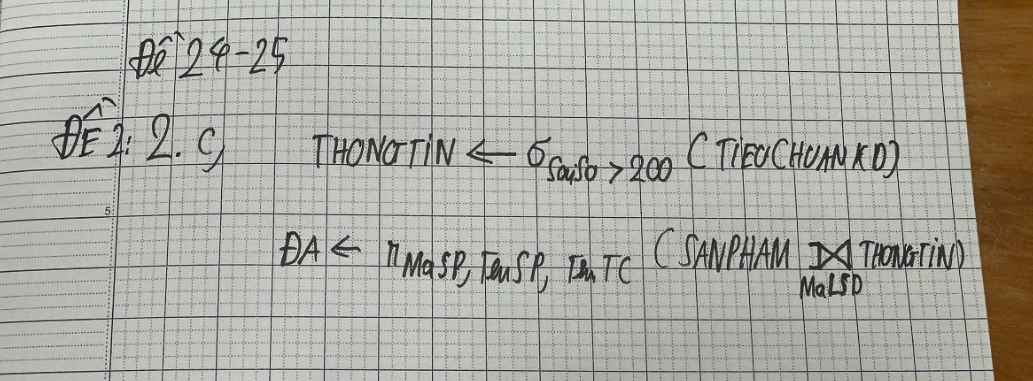 Đề 24-25
ĐỀ 2: 2. c, THONGTIN ← σ SaiSo > 200 (TIEUCHUANKD)
5
ĐA ← π MaSP, TenSP, TenTC (SANPHAM ⋈ THONGTIN)
MaLSP